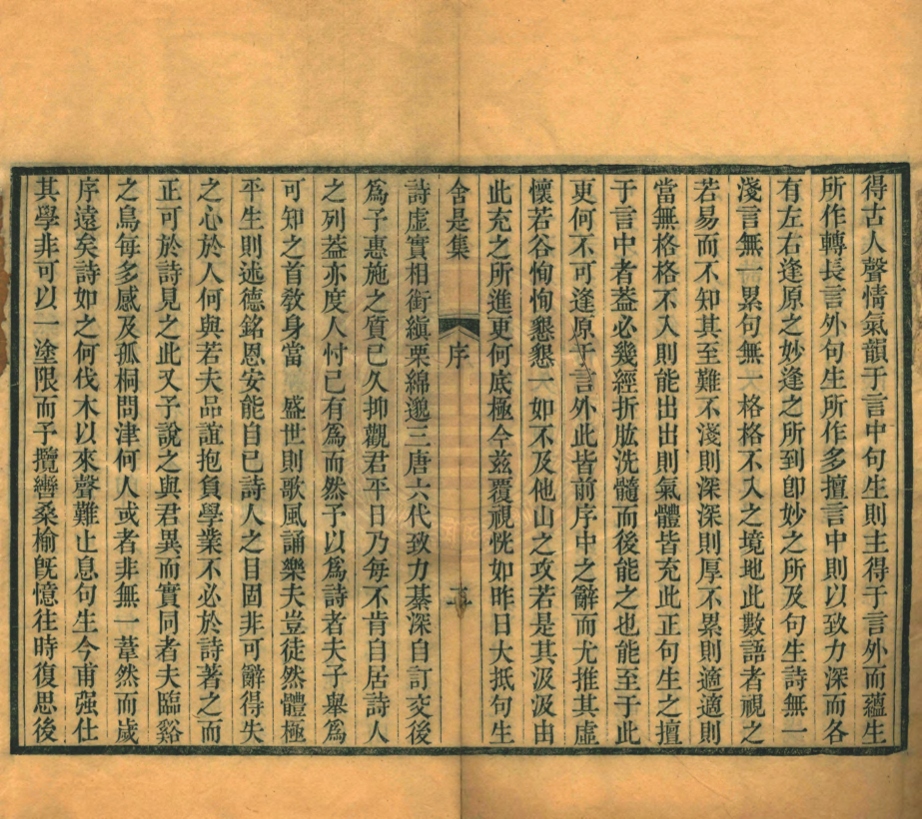 得古人聲情氣韻于言中句生則主得于言外而蘊生
所作轉長言外句生所作多擅言中則以致力深而各
有左右逢原之妙逢之所到卽妙之所及句生詩無一
淺言無一累句無一格格不入之境地此數語者視之
若易而不知其至難不淺則深深則厚不累則適適則
當無格格不入則能出出則氣體皆充此正句生之擅
于言中者葢必幾經折肱洗髓而後能之也能至于此
更何不可逢原于言外此皆前序中之辭而尤推其虛
懷若谷恂恂懇懇一如不及他山之攻若是其汲汲由
此充之所進更何底極今兹覆視恍如昨日大抵句生
舍是集
序
詩虛實相銜縝栗綿邈三唐六代致力綦深自訂交後
爲子惠施之質已久抑觀君平日乃每不肯自居詩人
之列葢亦度人忖已有爲而然予以爲詩者夫子舉爲
可知之首敎身當 盛世則歌風誦樂夫豈徒然體極
平生則述德銘恩安能自已詩人之目固非可辭得失
之心於人何與若夫品誼抱負學業不必於詩著之而
正可於詩見之此又予說之與君異而實同者夫臨谿
之鳥每多感及孤桐問津何人或者非無一葦然而歲
序遠矣詩如之何伐木以來聲難止息句生今甫强仕
其學非可以一塗限而予攬轡桑榆旣憶往時復思後